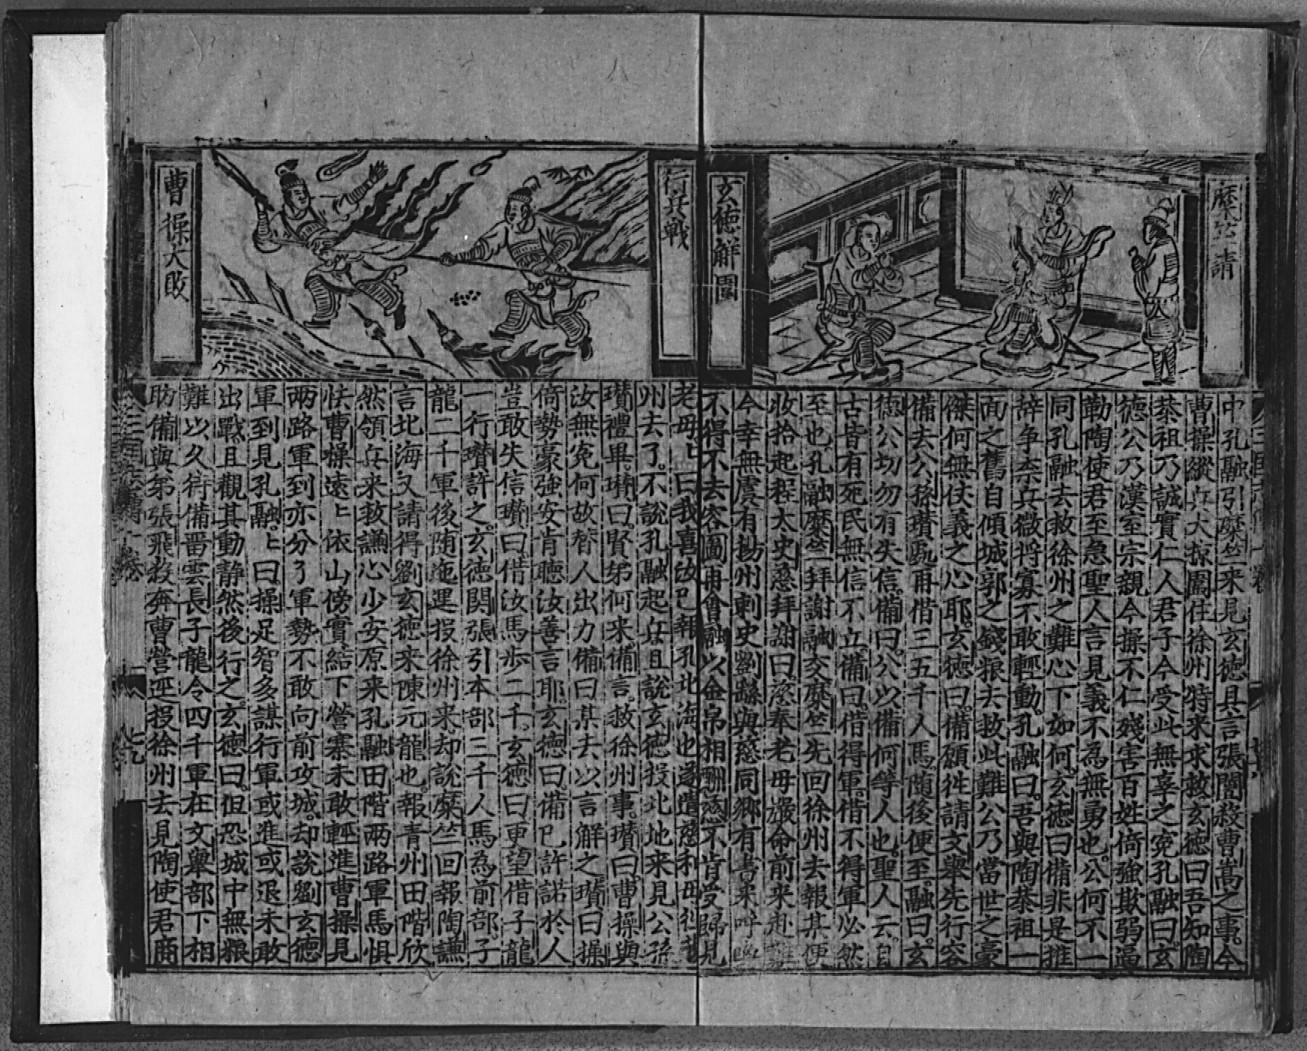 糜竺請
玄德解圍
中孔融引糜竺來見玄德具言張闓殺曹嵩之事今
曹操縱兵大掠圍住徐州特來求救玄德曰吾知陶
恭祖乃誠實仁人君子今受此無辜之冤孔融曰玄
德公乃漢至宗親今操不仁殘害百姓倚強欺弱逼
勒陶使君至急聖人言見義不為無勇也公何不一
同孔融去救徐州之難心下如何玄德曰備非是推
辞争奈兵微将寡不敢輕動孔融曰吾與陶恭祖一
面之舊自傾城郭之錢粮去救此難公乃當世之豪
傑何無仗義之心耶玄德曰備願徃請文舉先行容
備去公孫瓚處再借三五千人馬随後便至融曰玄
德公切勿有失信備曰公以備何等人也聖人云自
古皆有死民無信不立備曰借得軍借不得軍必然
至也孔融糜竺拜謝融交糜竺先回徐州去報其便
收拾起程太史慈拜謝曰慈奉老母嚴命前來赴難
今幸無虞有揚州刺史劉繇與慈同鄉有書來呼
不得不去容圖再會融以金帛相酬慈不肯受歸見
行兵戰
曹操大敗
老母曰我喜汝已報孔北海也遂遣慈
州去了不說孔融起兵且說玄德投北地来見公孫
瓚禮畢瓚曰賢弟何来備言救徐州事瓚曰曹操與
汝無冤何故替人出力備曰某去以言解之瓚曰操
倚勢豪強安肯聽汝善言耶玄德曰備已許諾於人
豈敢失信瓚曰借汝馬步二千玄德曰更望借子龍
一行瓚許之玄德関張引本部三千人馬為前部子
龍二千軍後随迤邐投徐州来却說糜竺回報陶謙
言北海又請得劉玄德来陳元龍也報青州田階欣
然領兵来救謙心少安原来孔融田階兩路軍馬惧
怯曹操遠〻依山傍實結下營寨未敢輕進曹操見
兩路軍到亦分了軍勢不敢向前攻城却說劉玄德
軍到見孔融〻曰操足智多謀行軍或進或退未敢
出戰且觀其動静然後行之玄德曰但恐城中無粮
難以久待備留雲長子龍令四千軍在文舉部下相
助備與弟張飛殺奔曹營逕投徐州去見陶使君商